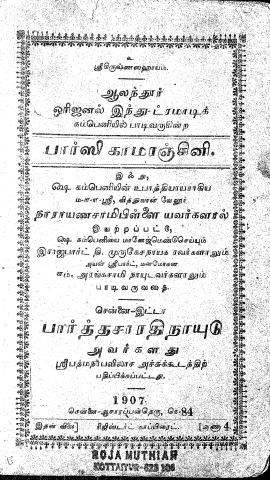 உ
ஸ்ரீகிருஷ்ணஸஹாயம்.
ஆலந்தூர்
ஒரிஜனல் இந்து-ட்ரமாடிக்
கம்பெனியில் பாடிவருகின்ற
பார்ஸி காமரஞ்சினி.
இஃது,
ஷை கம்பெனியின் உபாத்தியாயராகிய
ம-ா-ா-ஸ்ரீ, வித்துவான் வேலூர்
நாராயணசாமிபிள்ளை யவர்களால்
இயற்றப்பட்டு,
ஷை கம்பெனியை மானேஜ்மெண்டுசெய்யும்
இராஜபார்ட் தி. முருகேசநாயக ரவர்களாலும்
அயன் ஸ்ரீபார்ட்,
எம். அரங்கசாமி நாயுடவர்களாலும்
பாடிவருவதை
சென்னை-இட்டா
பார்த்தசாரதிநாயுடு
அவர்களது
ஸ்ரீபத்மநாபவிலாச அச்சுக்கூடத்திற்
பதிப்பிக்கப்பட்டது.
1907
சென்னை-ஆசாரப்பன்தெரு, செ-84
இதன் விலை] ரிஜிஸ்டர்ட் காப்பிரைட். [அணா 4
ROJA MUTHIAH
KOTTAIYUR-623 106